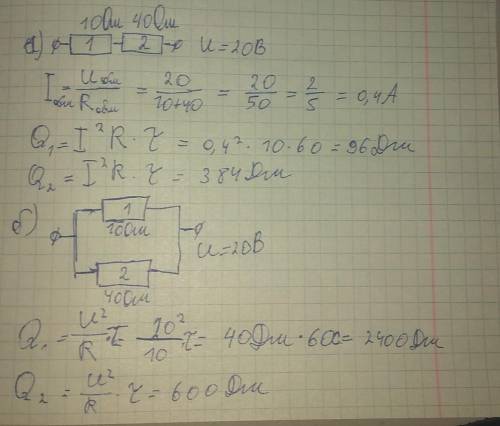 10Ом 40Ом
а) 1 2 U=20В
Iобщ = Uобщ / Rобщ = 20 / 10+40 = 20/50 = 2/5 = 0,4А
Q₁ = I²R·τ = 0,4²·10·60 = 96Дж
Q₂ = I²R·τ = 384Дж
б) 1
10Ом
U=20В
2
40Ом
Q₁ = U²/R·τ = 20²/10 τ = 40Дж·60с = 2400Дж
Q₂ = U²/R · τ = 600Дж